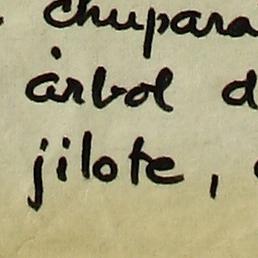 chupara
árbol d
jilote,